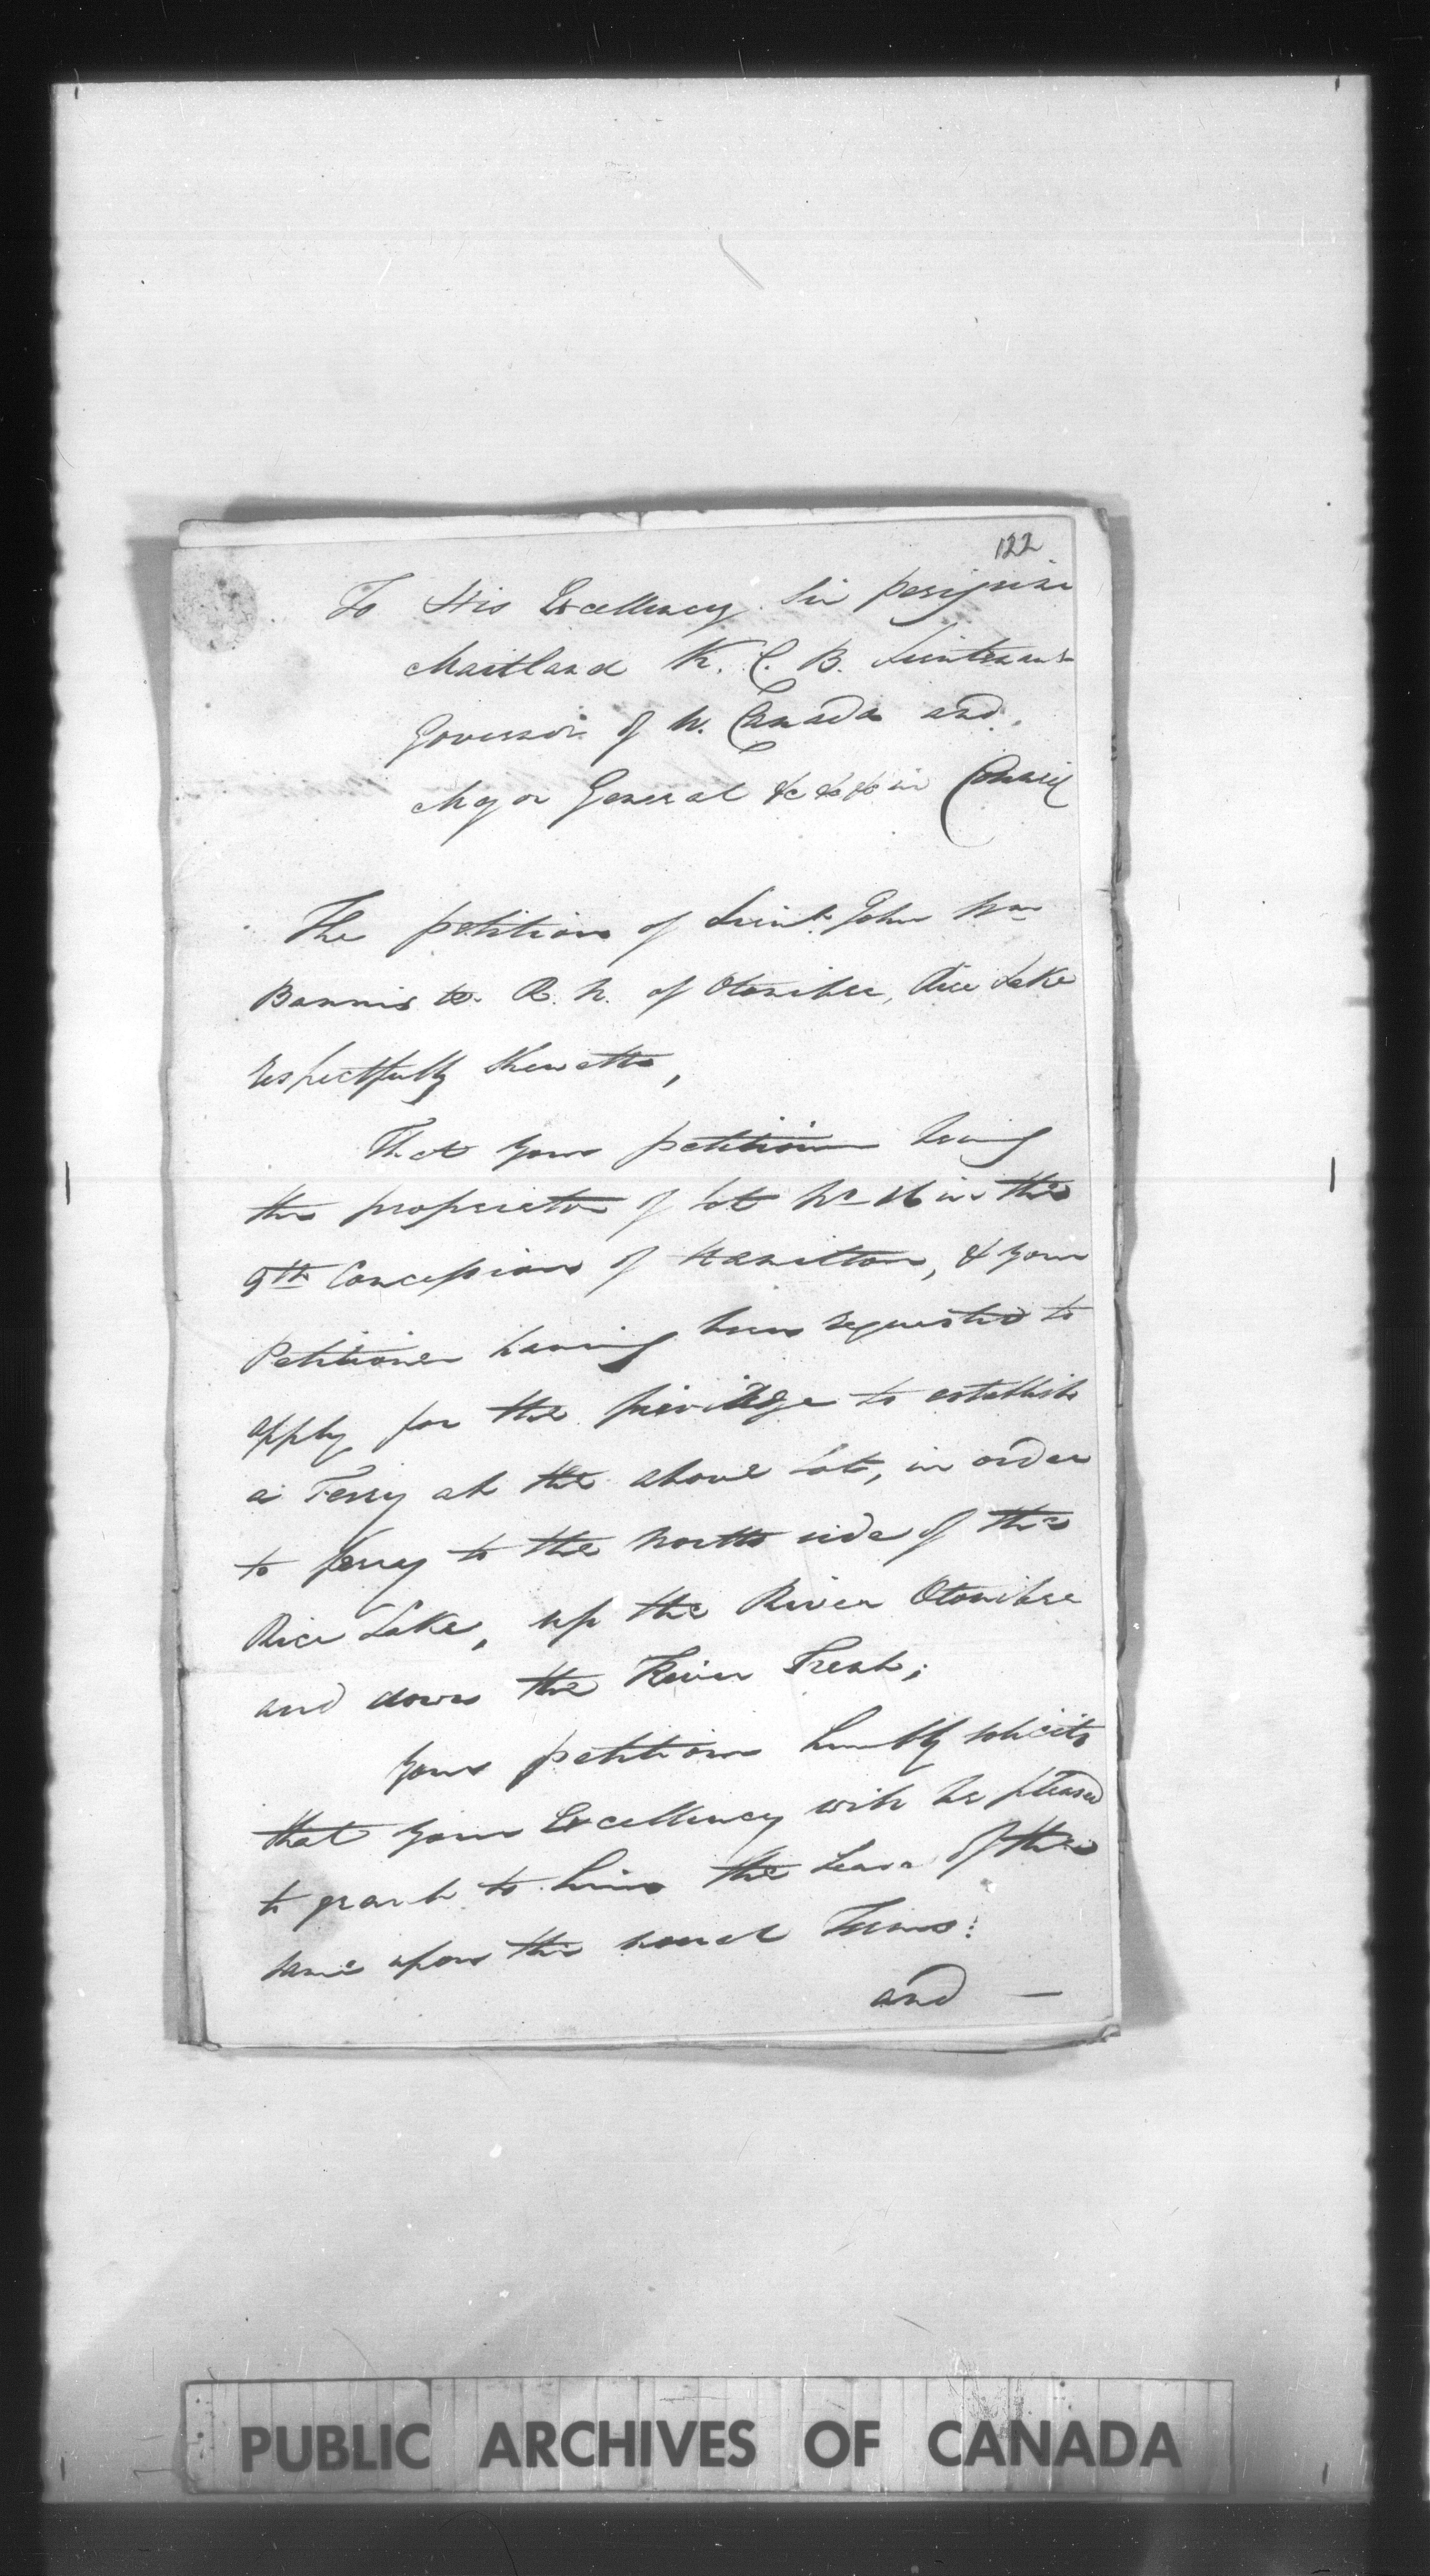 122
To His Excellency Sir peregrine
Maitland K. C. B. Lieutenant
Governor of U. Canada and
Major General &c &c &c in Council
The petition of Lieut. John Wm
Bannister R. N. of Otonibee, Rice Lake
respectfully sheweth,
That your petitioner being
the proprietor of Lot No 16 in the
9th Concession of Hamilton, & your
Petitioner having been requested to
apply for the privilege to establish
a Ferry at the above Lot, in order
to ferry to the North side of the
Rice Lake, up the River Otonibee
and down the River Trent;
Your petitioner humbly solicits
that your Excellency will be pleased
to grant to him the Lease of the
same upon the usual Terms:
and —
PUBLIC ARCHIVES OF CANADA